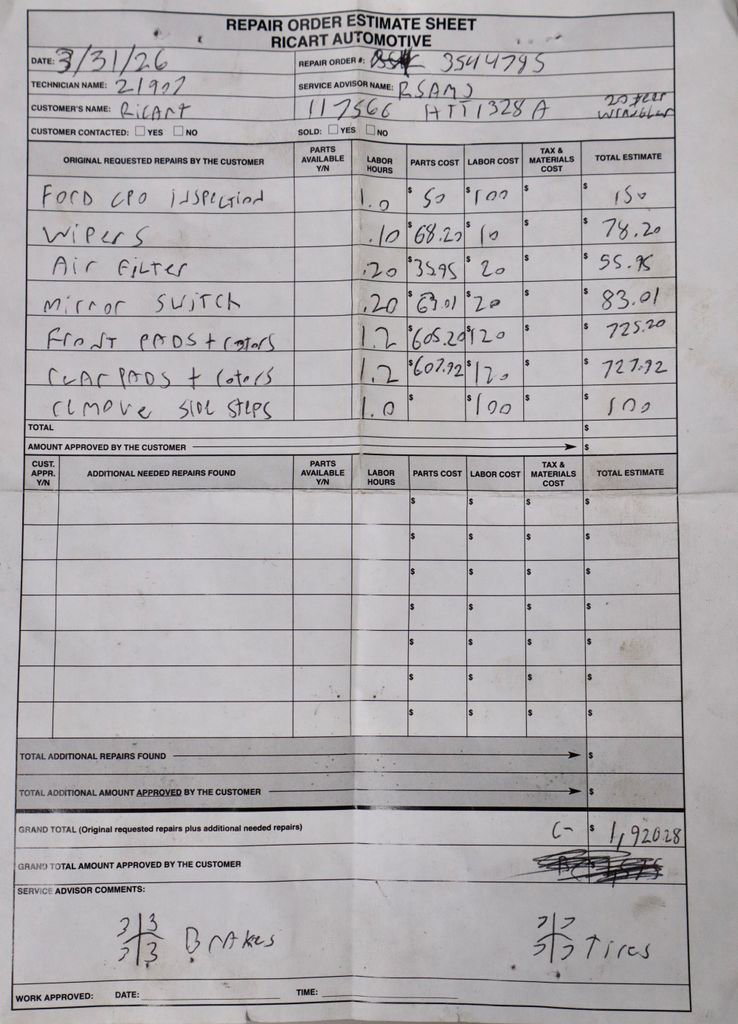 REPAIR ORDER ESTIMATE SHEET
RICART AUTOMOTIVE
DATE: 3/31/26 REPAIR ORDER #: 3544785
TECHNICIAN NAME: 21907 SERVICE ADVISOR NAME: RSAMJ
CUSTOMER'S NAME: RicArt 117566 HTT1328A 20
CUSTOMER CONTACTED: ☐ YES ☐ NO SOLD: ☐ YES ☐ NO
ORIGINAL REQUESTED REPAIRS BY THE CUSTOMER PARTS AVAILABLE Y/N LABOR HOURS PARTS COST LABOR COST TAX & MATERIALS COST TOTAL ESTIMATE
FORD CPO inSPECTiON 1.0 $ 50 $ 100 $ $ 150
WiPErS .10 $ 68.20 $ 10 $ $ 78.20
Air FiLTEr .20 $ 35.95 $ 20 $ $ 55.95
Mirror SWiTCH .20 $ 63.01 $ 20 $ $ 83.01
FroNT PADS + rotors 1.2 $ 605.20 $ 120 $ $ 725.20
rEAr PADS + rotors 1.2 $ 607.92 $ 120 $ $ 727.92
rEMOVE SiDE STEPS 1.0 $ $ 100 $ $ 100
TOTAL $
AMOUNT APPROVED BY THE CUSTOMER $
CUST. APPR. Y/N ADDITIONAL NEEDED REPAIRS FOUND PARTS AVAILABLE Y/N LABOR HOURS PARTS COST LABOR COST TAX & MATERIALS COST TOTAL ESTIMATE
$ $ $ $
$ $ $ $
$ $ $ $
$ $ $ $
$ $ $ $
$ $ $ $
$ $ $ $
TOTAL ADDITIONAL REPAIRS FOUND $
TOTAL ADDITIONAL AMOUNT APPROVED BY THE CUSTOMER $
GRAND TOTAL (Original requested repairs plus additional needed repairs) C- $ 1,920.28
GRAND TOTAL AMOUNT APPROVED BY THE CUSTOMER
SERVICE ADVISOR COMMENTS:
3 3 7 7
3 3 BrAKes 7 7 Tires
WORK APPROVED: DATE: TIME: